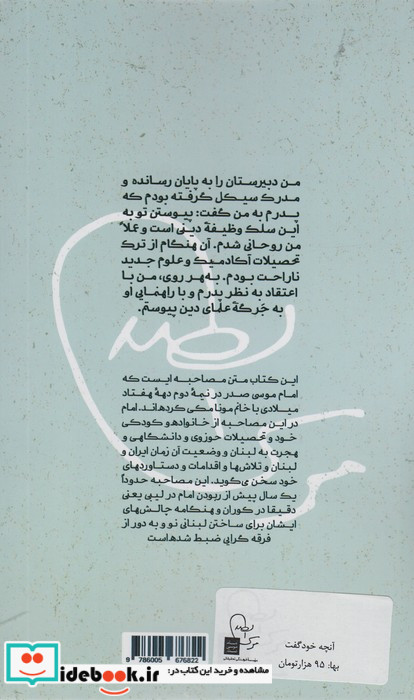 من دبیرستان را به پایان رسانده و
مدرک سیکل گرفته بودم که
پدرم به من گفت: پیوستن تو به
این سلک وظیفهٔ دینی است و عملاً
من روحانی شدم. آن هنگام از ترک
تحصیلات آکادمیک و علوم جدید
ناراحت بودم. به‌هر روی، من با
اعتقاد به نظر پدرم و با راهنمایی او
به جَرگهٔ علمای دین پیوستم.
این کتاب متن مصاحبه ایست که
امام موسی صدر در نیمهٔ دوم دههٔ هفتاد
میلادی با خانم مونا مکی کرده‌اند. امام
در این مصاحبه از خانواده و کودکی
خود و تحصیلات حوزوی و دانشگاهی و
هجرت به لبنان و وضعیت آن زمان ایران و
لبنان و تلاش‌ها و اقدامات و دستاوردهای
خود سخن می‌گوید. این مصاحبه حدوداً
یک سال پیش از ربودن امام در لیبی یعنی
دقیقا در کوران و هنگامه چالش‌های
ایشان برای ساختن لبنانی نو و به دور از
فرقه گرایی ضبط شده‌است
آنچه خود گفت
بها: ۹۵ هزارتومان
9 786005 676822
idebook.ir
مشاهده و خرید این کتاب در: